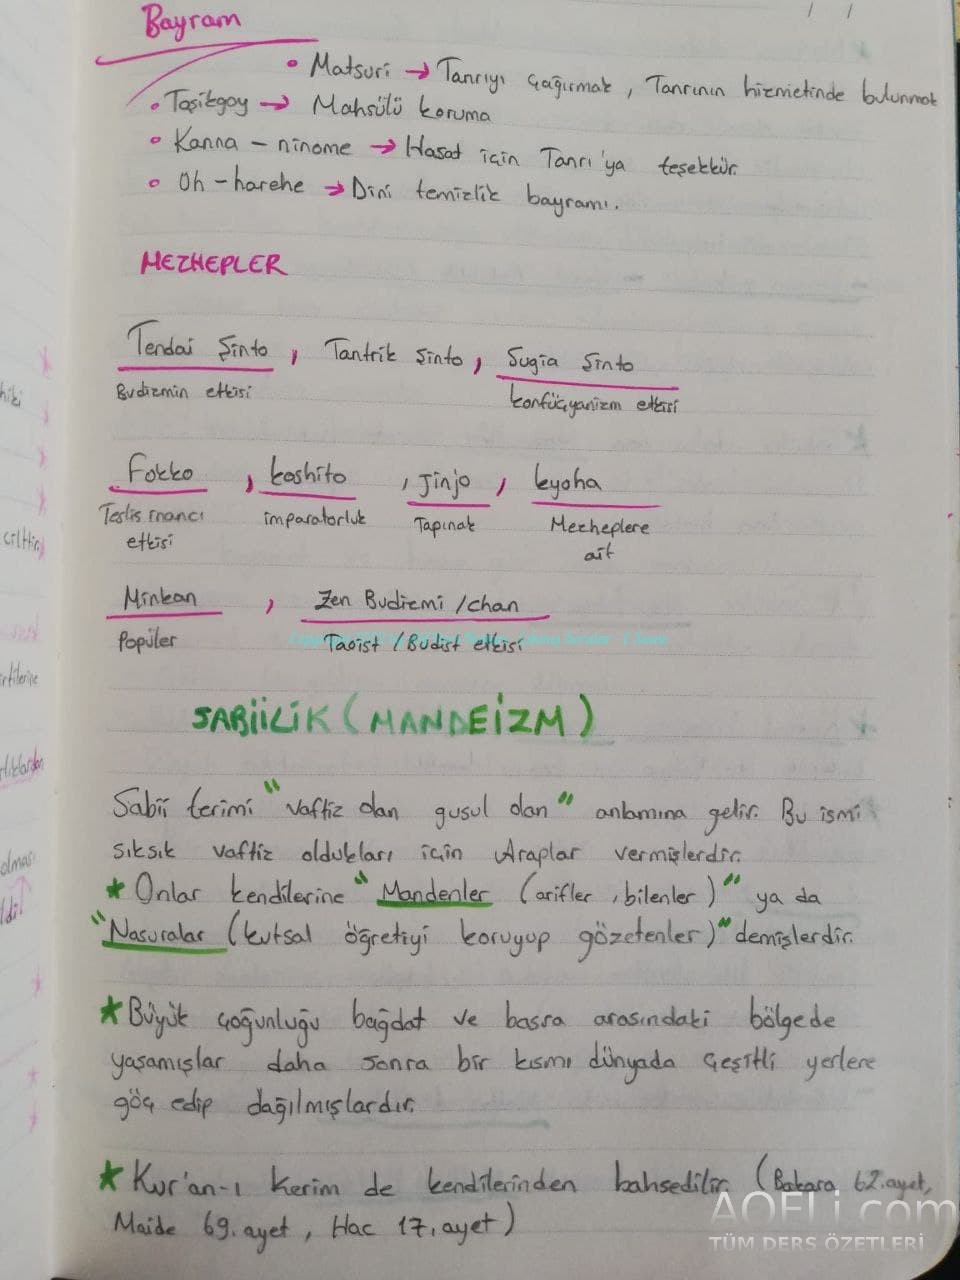 Bayram
• Matsuri → Tanrıyı çağırmak, Tanrının hizmetinde bulunmak
• Taşikgoy → Mahsülü koruma
• Kanna - ninome → Hasat için Tanrı'ya teşekkür.
• Oh - harehe → Dini temizlik bayramı.
MEZHEPLER
Tendai Şinto, Tantrik Şinto, Sugia Şinto
Budizmin etkisi konfüçyanizm etkisi
Fokko, koshito, Jinjo, kyoha
Teslis inancı imparatorluk Tapınak Mezheplere
etkisi ait
Minkan, Zen Budizmi /chan
Popüler Taoist / Budist etkisi
SABİİLİK (MANDEİZM)
Sabii terimi "vaftiz olan gusul olan" anlamına gelir. Bu ismi
sıksık vaftiz oldukları için Araplar vermişlerdir.
* Onlar kendilerine "Mandenler (arifler, bilenler)" ya da
"Nasuralar (kutsal öğretiyi koruyup gözetenler)" demişlerdir.
* Büyük çoğunluğu bağdat ve basra arasındaki bölgede
yaşamışlar daha sonra bir kısmı dünyada çeşitli yerlere
göç edip dağılmışlardır.
* Kur'an-ı kerim de kendilerinden bahsedilir. (Bakara 62. ayet,
Maide 69. ayet, Hac 17. ayet)
AOFLi.com
TÜM DERS ÖZETLERİ